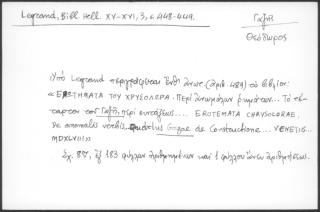 Legrand, Bibl. Hell. XV-XVI, 3, σ. 448-449.
Γαζῆ
Θεόδωρος
Ὑπὸ Legrand περιγράφεται ἔνθ' ἄνωτ. (ἀριθ. 489) τὸ βιβλίον:
«ΕΡΩΤΗΜΑΤΑ ΤΟΥ ΧΡΥΣΟΛΩΡΑ. Περὶ ἀνωμάλων ῥημάτων... Τὸ τέ-
ταρτον τοῦ Γαζῆ, περὶ συντάξεως.... EROTEMATA CHRYSOLORAE.
De anomalis verbis. Theodori Gazae de Constructione.... VENETIIS...
MDXLVIII»
Σχ. 8ον, ἐξ 183 φύλλων ἠριθμημένων καὶ 1 φύλλου ἄνευ ἀριθμήσεως.